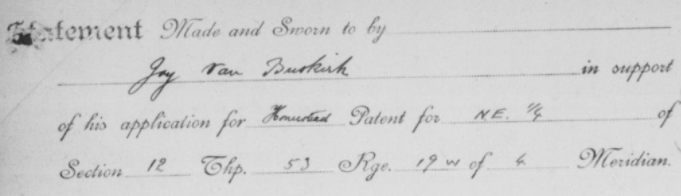 Statement Made and Sworn to by
Jay Van Buskirk in support
of his application for Homestead Patent for N.E. 1/4 of
Section 12 Thp. 53 Rge. 19 W of 4 Meridian.